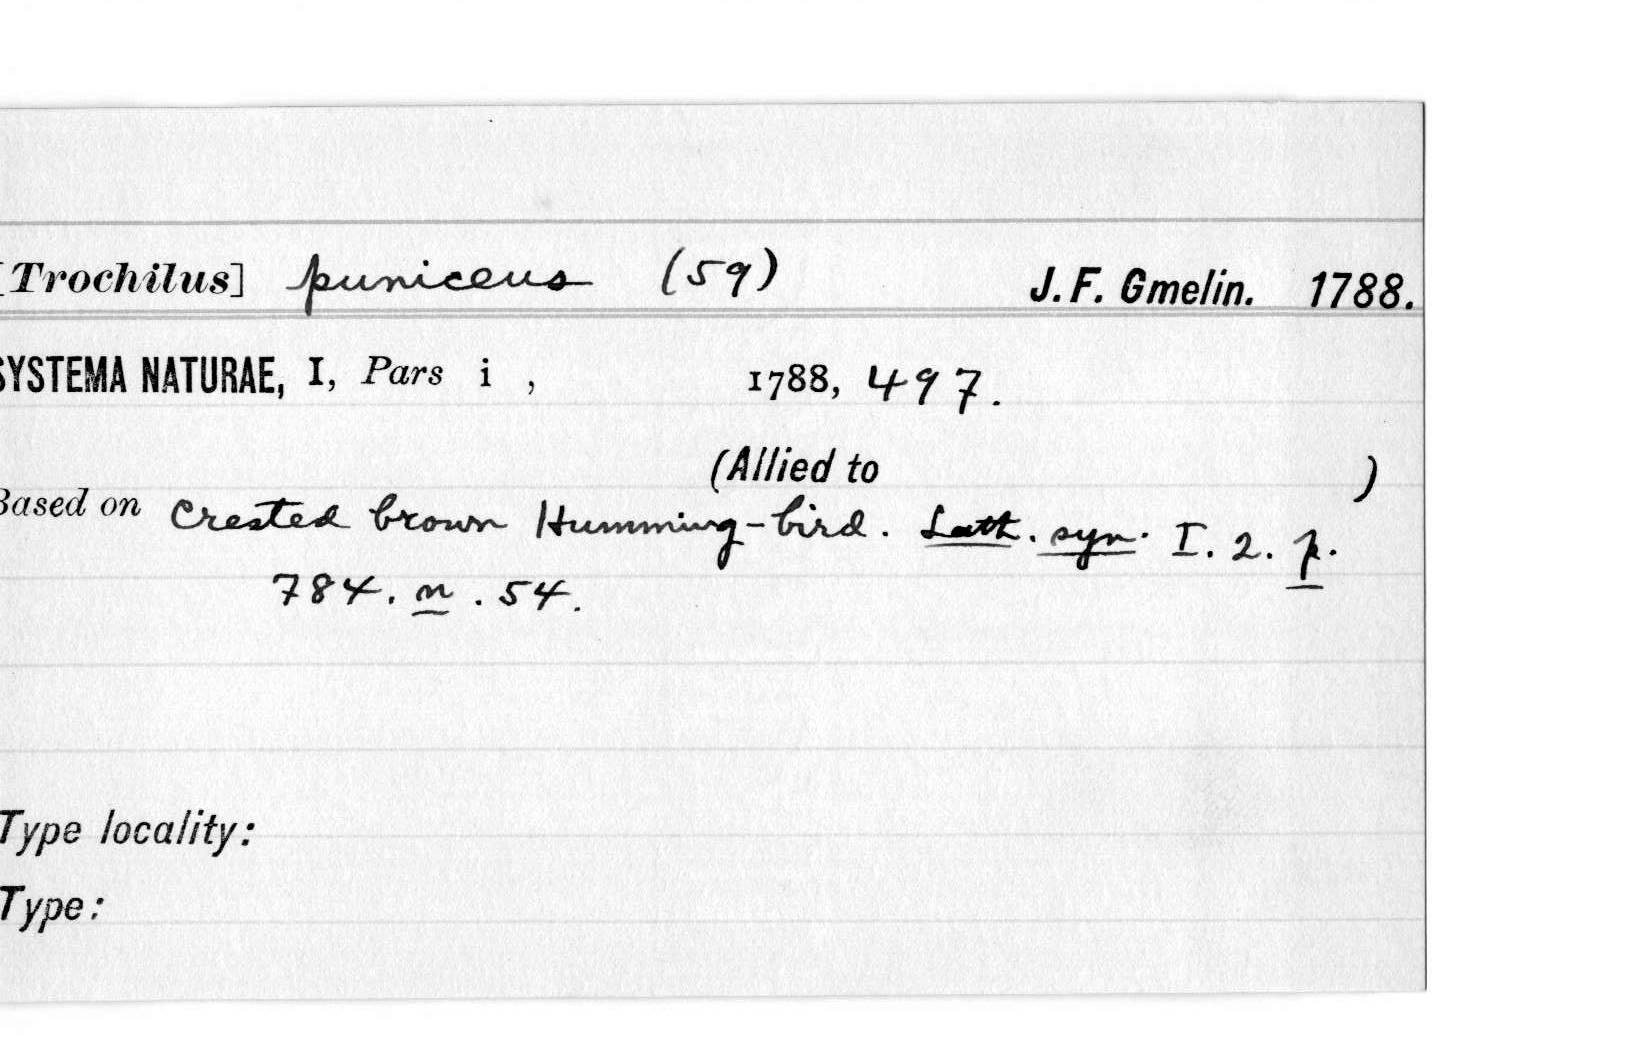 [Trochilus] puniceus (59) J. F. Gmelin. 1788.
SYSTEMA NATURAE, I, Pars i , 1788, 497.
(Allied to )
Based on Crested brown Humming-bird. Lath. syn. I. 2. p.
784. n. 54.
Type locality:
Type: